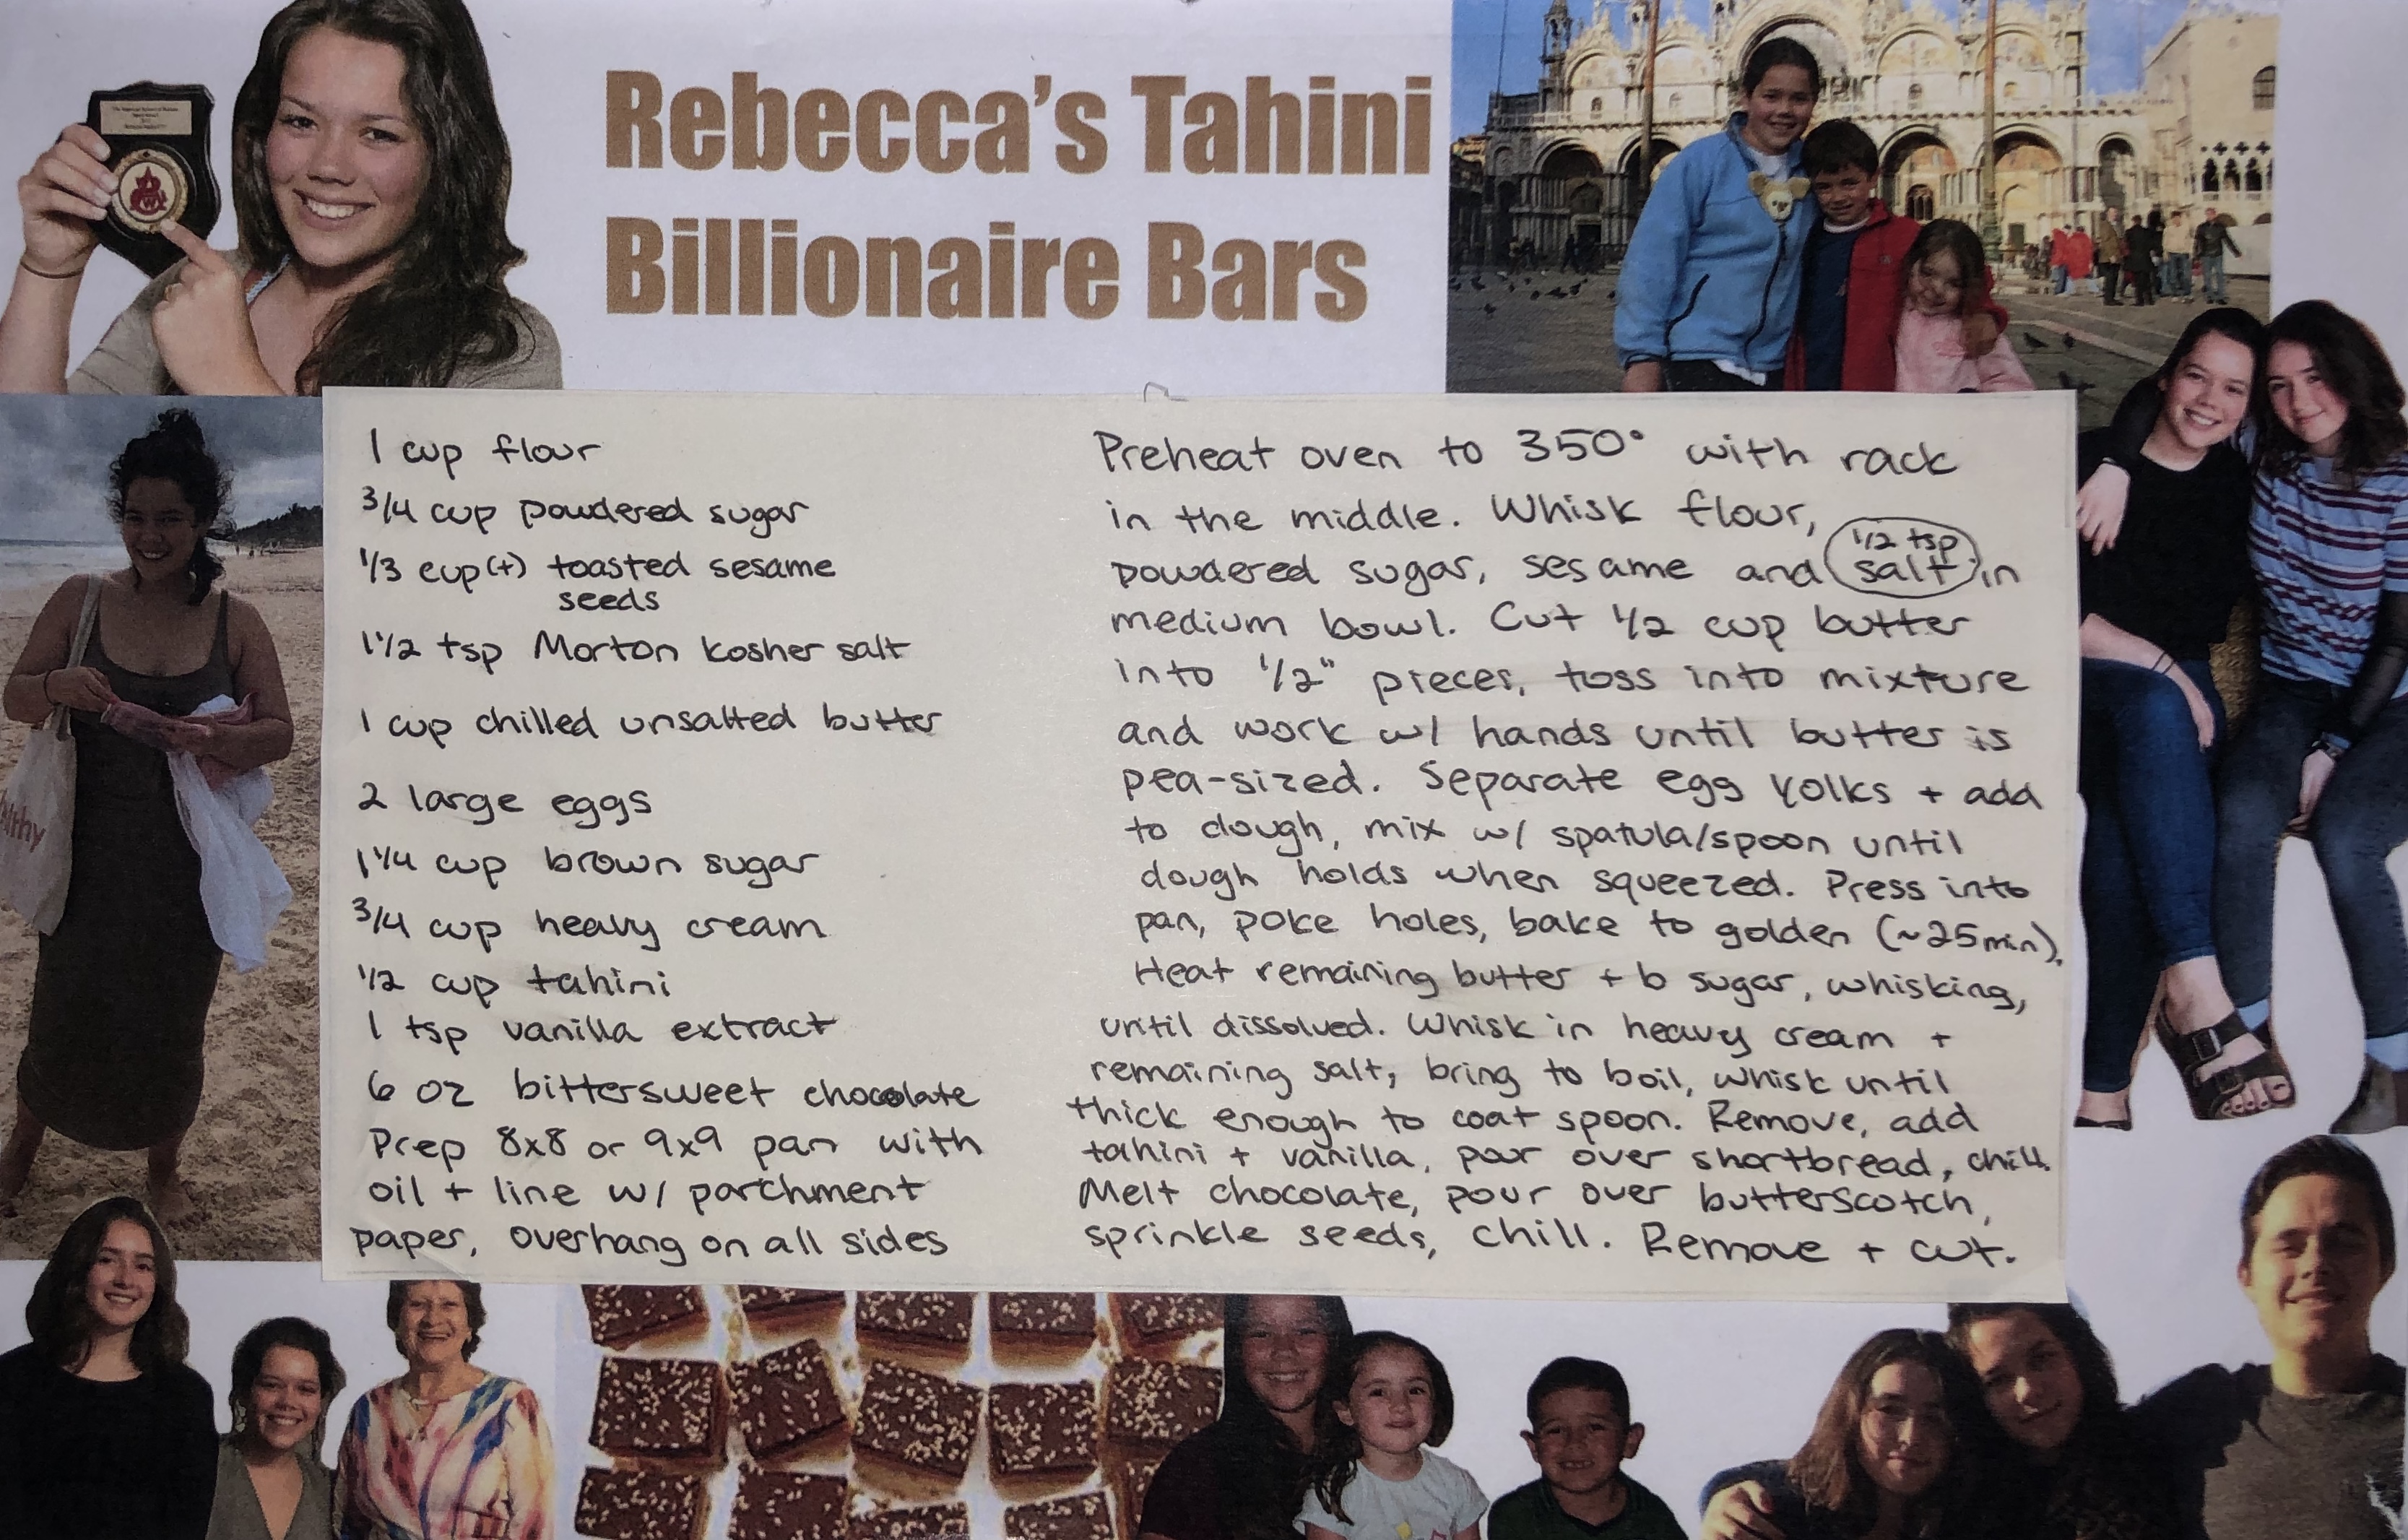 Rebecca's Tahini
Billionaire Bars
1 cup flour
3/4 cup powdered sugar
1/3 cup(+) toasted sesame
seeds
1 1/2 tsp Morton kosher salt
1 cup chilled unsalted butter
2 large eggs
1 1/4 cup brown sugar
3/4 cup heavy cream
1/2 cup tahini
1 tsp vanilla extract
6 oz bittersweet chocolate
Prep 8x8 or 9x9 pan with
oil + line w/ parchment
paper, overhang on all sides
Preheat oven to 350° with rack
in the middle. Whisk flour,
powdered sugar, sesame and 1/2 tsp salt in
medium bowl. Cut 1/2 cup butter
into 1/2" pieces, toss into mixture
and work w/ hands until butter is
pea-sized. Separate egg yolks + add
to dough, mix w/ spatula/spoon until
dough holds when squeezed. Press into
pan, poke holes, bake to golden (~25min).
Heat remaining butter + b sugar, whisking,
until dissolved. Whisk in heavy cream +
remaining salt, bring to boil, whisk until
thick enough to coat spoon. Remove, add
tahini + vanilla, pour over shortbread, chill.
Melt chocolate, pour over butterscotch,
sprinkle seeds, chill. Remove + cut.